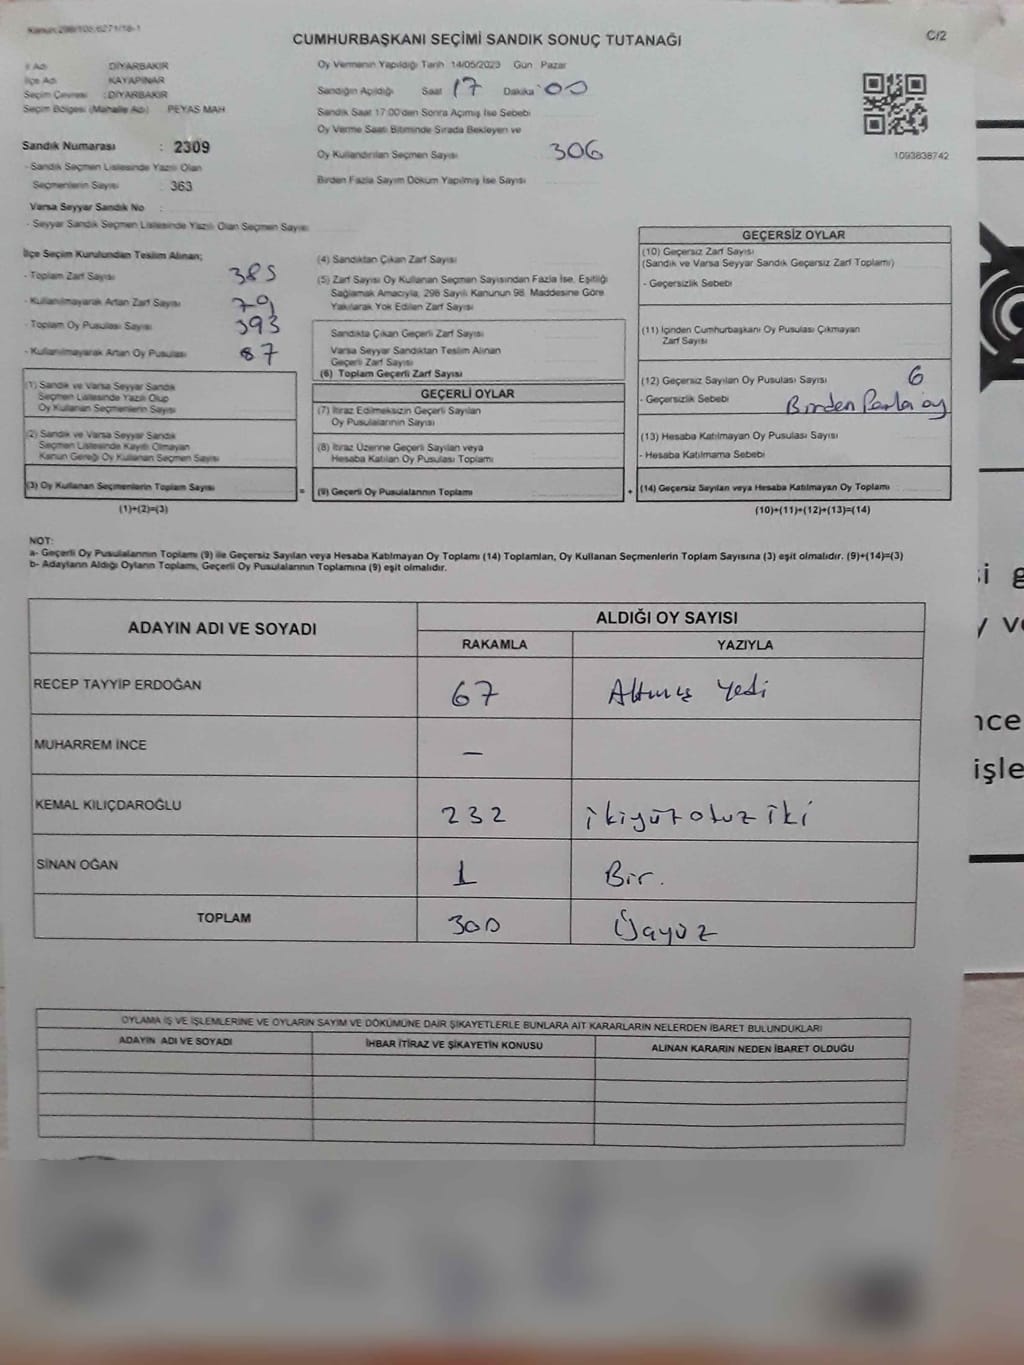 Kanun:298/105,6271/18-1
CUMHURBAŞKANI SEÇİMİ SANDIK SONUÇ TUTANAĞI
C/2
İl Adı DİYARBAKIR
İlçe Adı KAYAPINAR
Seçim Çevresi : DİYARBAKIR
Seçim Bölgesi (Mahalle Adı) PEYAS MAH
Sandık Numarası : 2309
- Sandık Seçmen Listesinde Yazılı Olan
Seçmenlerin Sayısı : 363
Varsa Seyyar Sandık No :
- Seyyar Sandık Seçmen Listesinde Yazılı Olan Seçmen Sayısı
Oy Vermenin Yapıldığı Tarih 14/05/2023 Gün Pazar
Sandığın Açıldığı Saat 17 Dakika 00
Sandık Saat 17:00'den Sonra Açımış İse Sebebi
Oy Verme Saati Bitiminde Sırada Bekleyen ve
Oy Kullandırılan Seçmen Sayısı 306
Birden Fazla Sayım Döküm Yapılmış İse Sayısı
1093838742
İlçe Seçim Kurulundan Teslim Alınan;
- Toplam Zarf Sayısı 385
- Kullanılmayarak Artan Zarf Sayısı 79
- Toplam Oy Pusulası Sayısı 393
- Kullanılmayarak Artan Oy Pusulası 87
(1) Sandık ve Varsa Seyyar Sandık
Seçmen Listesinde Yazılı Olup
Oy Kullanan Seçmenlerin Sayısı
(2) Sandık ve Varsa Seyyar Sandık
Seçmen Listesinde Kayıtlı Olmayan
Kanun Gereği Oy Kullanan Seçmen Sayısı
(3) Oy Kullanan Seçmenlerin Toplam Sayısı
(1)+(2)=(3)
=
(4) Sandıktan Çıkan Zarf Sayısı
(5) Zarf Sayısı Oy Kullanan Seçmen Sayısından Fazla İse, Eşitliği
Sağlamak Amacıyla, 298 Sayılı Kanunun 98. Maddesine Göre
Yakılarak Yok Edilen Zarf Sayısı
Sandıkta Çıkan Geçerli Zarf Sayısı
Varsa Seyyar Sandıktan Teslim Alınan
Geçerli Zarf Sayısı
(6) Toplam Geçerli Zarf Sayısı
GEÇERLİ OYLAR
(7) İtiraz Edilmeksizin Geçerli Sayılan
Oy Pusulalarının Sayısı
(8) İtiraz Üzerine Geçerli Sayılan veya
Hesaba Katılan Oy Pusulası Toplamı
(9) Geçerli Oy Pusulalarının Toplamı
+
GEÇERSİZ OYLAR
(10) Geçersiz Zarf Sayısı
(Sandık ve Varsa Seyyar Sandık Geçersiz Zarf Toplamı)
- Geçersizlik Sebebi
(11) İçinden Cumhurbaşkanı Oy Pusulası Çıkmayan
Zarf Sayısı
(12) Geçersiz Sayılan Oy Pusulası Sayısı 6
- Geçersizlik Sebebi Birden Fazla oy
(13) Hesaba Katılmayan Oy Pusulası Sayısı
- Hesaba Katılmama Sebebi
(14) Geçersiz Sayılan veya Hesaba Katılmayan Oy Toplamı
(10)+(11)+(12)+(13)=(14)
NOT:
a- Geçerli Oy Pusulalarının Toplamı (9) ile Geçersiz Sayılan veya Hesaba Katılmayan Oy Toplamı (14) Toplamları, Oy Kullanan Seçmenlerin Toplam Sayısına (3) eşit olmalıdır. (9)+(14)=(3)
b- Adayların Aldığı Oyların Toplamı, Geçerli Oy Pusulalarının Toplamına (9) eşit olmalıdır.
ADAYIN ADI VE SOYADI
ALDIĞI OY SAYISI
RAKAMLA YAZIYLA
RECEP TAYYİP ERDOĞAN 67 Altmış Yedi
MUHARREM İNCE –
KEMAL KILIÇDAROĞLU 232 ikiyüzotuz iki
SİNAN OĞAN 1 Bir.
TOPLAM 300 Üçyüz
OYLAMA İŞ VE İŞLEMLERİNE VE OYLARIN SAYIM VE DÖKÜMÜNE DAİR ŞİKAYETLERLE BUNLARA AİT KARARLARIN NELERDEN İBARET BULUNDUKLARI
ADAYIN ADI VE SOYADI İHBAR İTİRAZ VE ŞİKAYETİN KONUSU ALINAN KARARIN NEDEN İBARET OLDUĞU